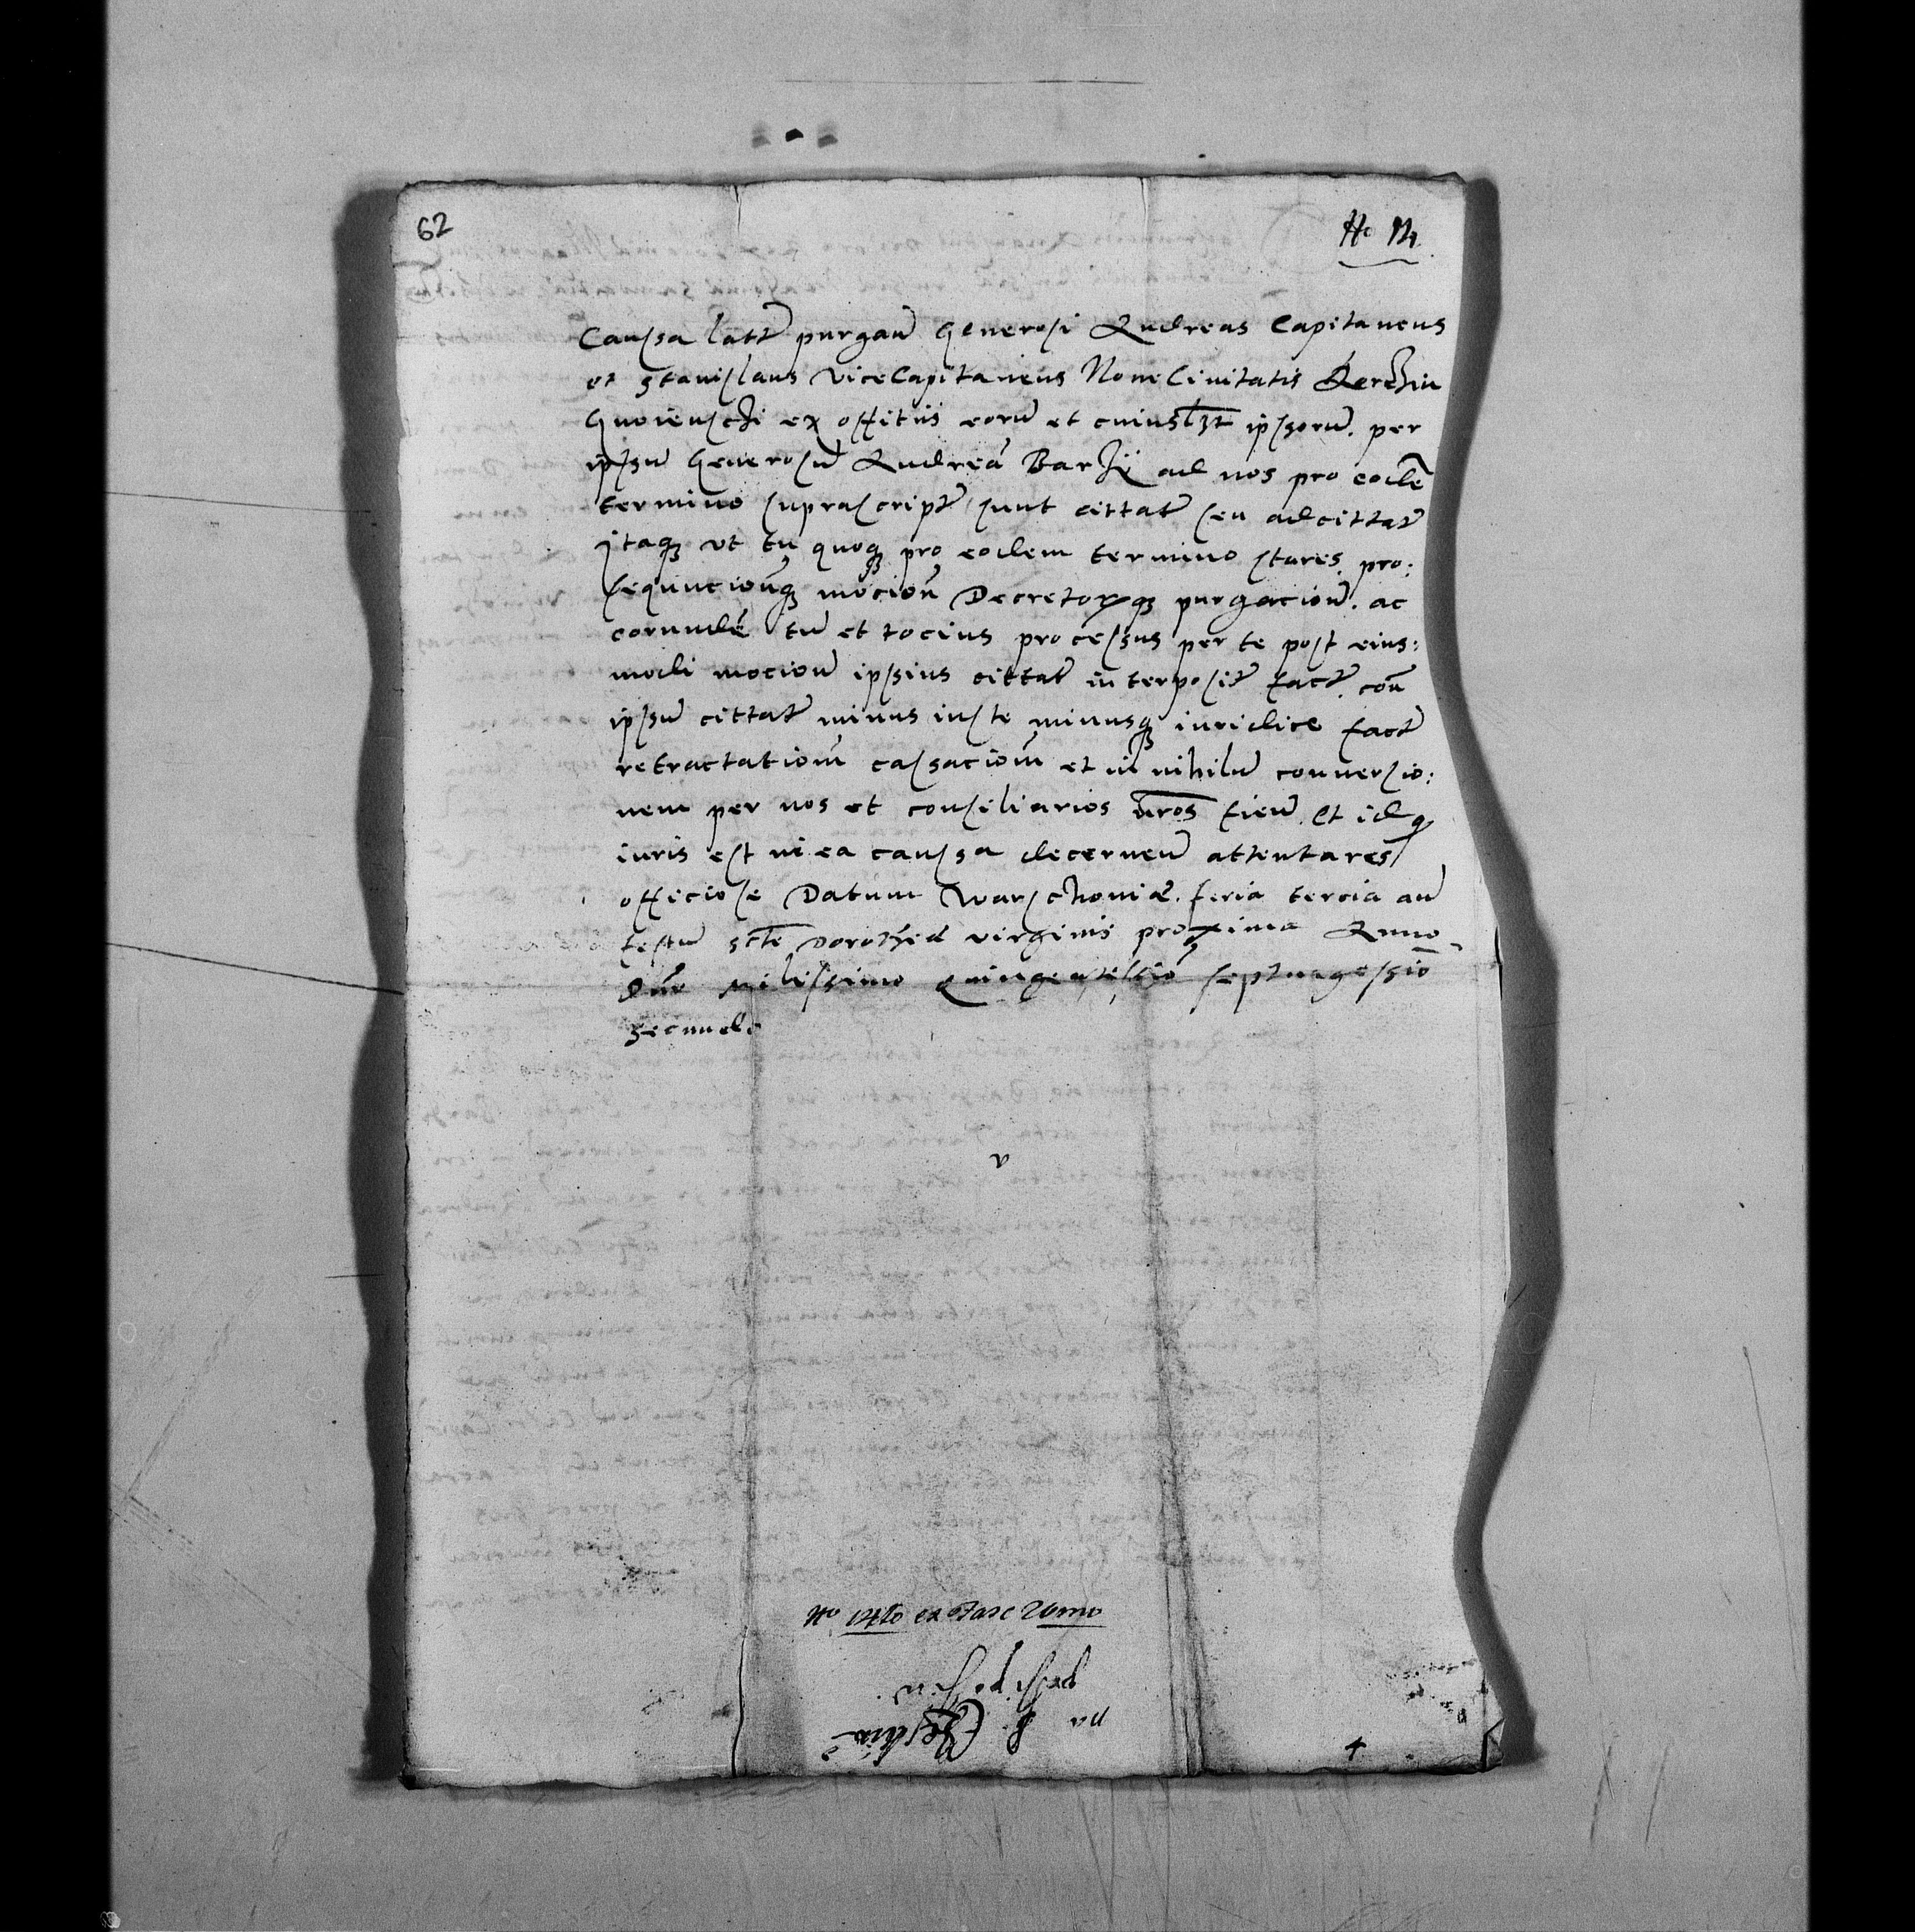 62
No 14
Causa latt̄ purgan̄ Generosi Andreas Capitaneus
et Stanislaus viceCapitaneus Noue Ciuitatis Korchin
Gnoienschi ex offitiis eorū et cuiuslꝫt ipsorū. per
ipsū Generosū Andreā Barzÿ ad nos pro eodē
termino suprascript̄ sunt cittat̄ seu adcittat̄
Itaqꝫ vt tu quoqꝫ pro eodem termino stares. pro:
sequucionēqꝫ mocion̄ Decretorꝝqꝫ purgacion̄. ac
eorundē tū et tocius processus per te post eius:
modi mocion̄ ipsius cittat̄ interposit̄ fact̄ con̄
ipsū cittat̄ minus iuste minusqꝫ iuridice fact̄
retractationē cassacionē et in nihilū conuersio:
nem per nos et consiliarios nr̄os fien̄. Et id qꝫ
iuris est in ea causa decernen̄ attentares
officiose Datum Warschoniæ. feria tercia an̄
festū sctē Dorotheæ virginis proxima Anno
Dn̄i Milissimo Quingentessio septuagessiō
secundo
v
No 14to ex Fasc 26mo
na
4